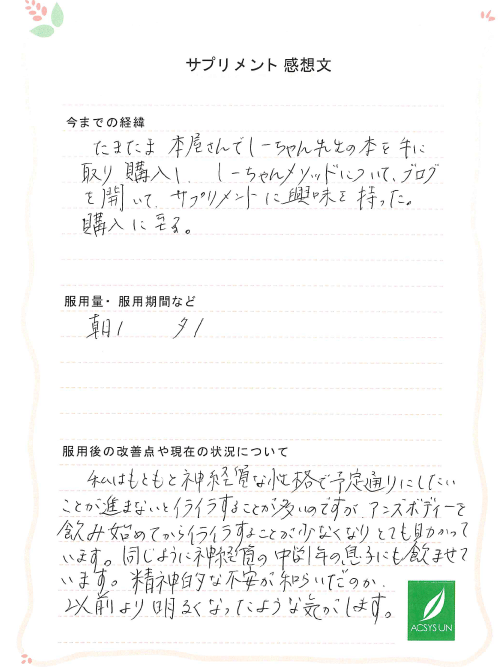 サプリメント 感想文
今までの経緯
たまたま 本屋さんでしーちゃん先生の本を手に
取り 購入し. しーちゃんメソッドについて、ブログ
を開いて. サプリメントに興味を持った。
購入に至る。
服用量・服用期間など
朝1 夕1
服用後の改善点や現在の状況について
私はもともと神経質な性格で予定通りにしたい
ことが進まないとイライラすることが多いのですが、アンズボディーを
飲み始めてからイライラすることが少なくなりとても助かって
います。同じように神経質の中学1年の息子にも飲ませて
います。精神的な不安が和らいだのか.
以前より明るくなったような気がします。
ACSYSUN